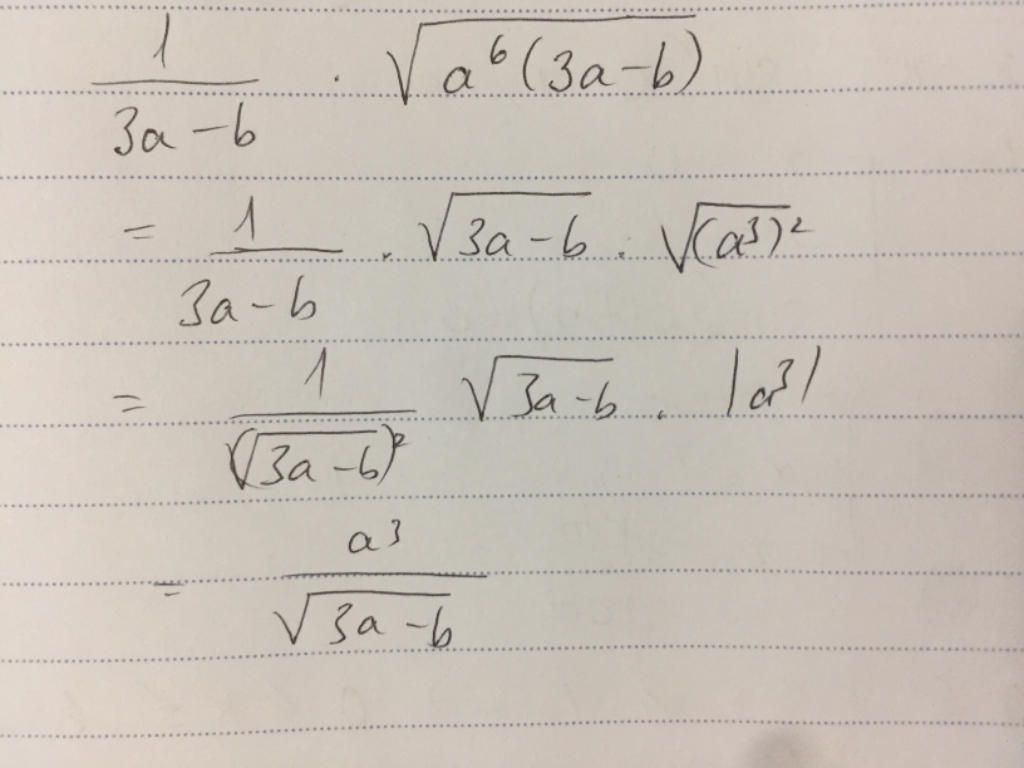 \frac{1}{3a-b} \cdot \sqrt{a^6(3a-b)}
= \frac{1}{3a-b} \cdot \sqrt{3a-b} \cdot \sqrt{(a^3)^2}
= \frac{1}{(\sqrt{3a-b})^2} \sqrt{3a-b} \cdot |a^3|
= \frac{a^3}{\sqrt{3a-b}}